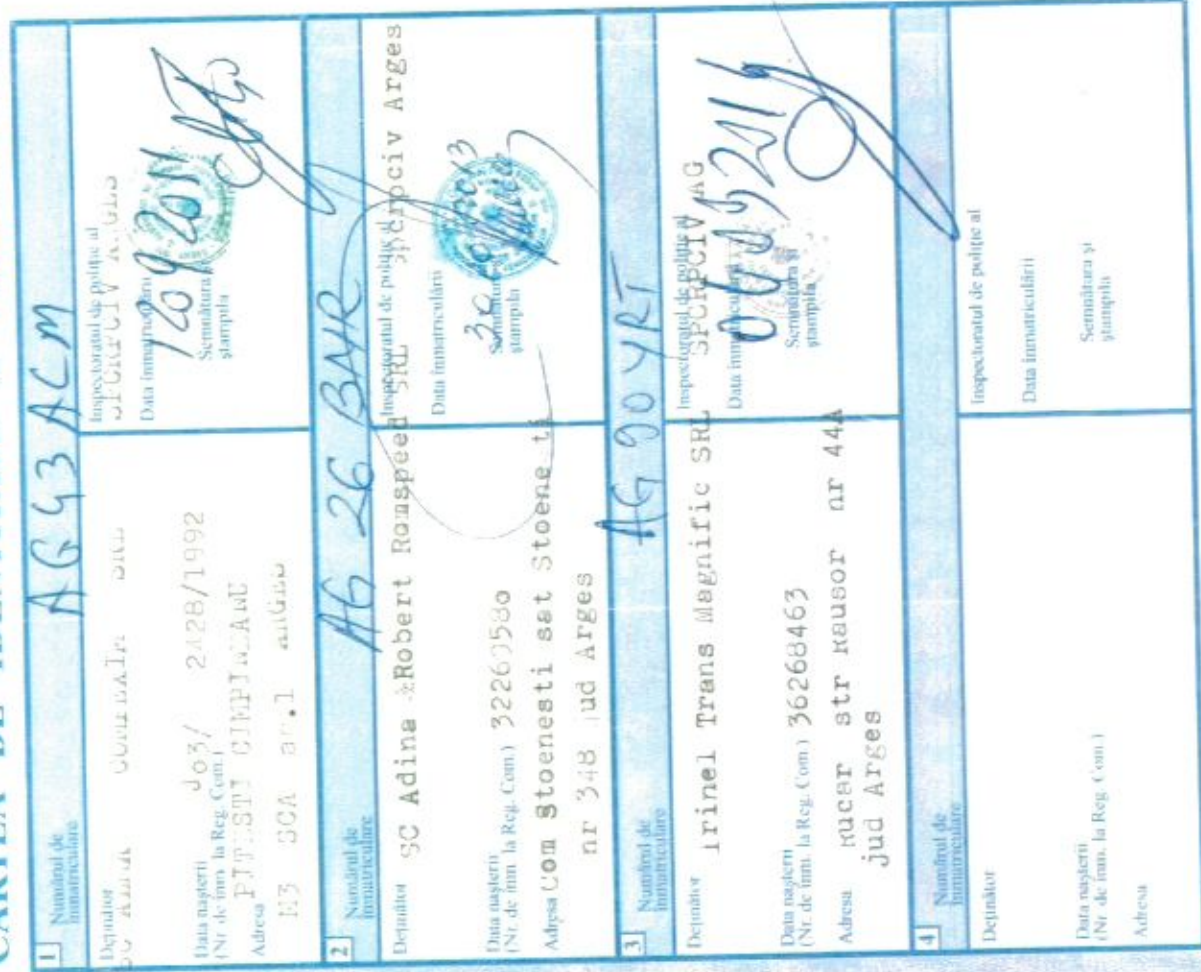 CARTEA DE
1 Numărul de înmatriculare AG 43 ACM
Deținător
SC SRL
Data nașterii
(Nr. de înm. la Reg. Com.) J03/ 2428/1992
Adresa PITESTI CIMPINEANU
M3 SCA ap.1 ARGES
Inspectoratul de poliție al
SPCRPCIV ARGES
Data înmatriculării
Semnătura și
ștampila
2 Numărul de înmatriculare AG 26 BAR
Deținător SC Adina &Robert Romspeed SRL
Data nașterii
(Nr. de înm. la Reg. Com.)
Adresa Com Stoenesti sat Stoene ti
nr 348 jud Arges
Inspectoratul de poliție al
Spcrpciv Arges
Data înmatriculării
Semnătura
ștampila
3 Numărul de înmatriculare AG 90 YRT
Deținător Irinel Trans Magnific SRL
Data nașterii
(Nr. de înm. la Reg. Com.) 36268463
Adresa Rucar str Rausor nr 44A
jud Arges
Inspectoratul de poliție al
SPCRPCIV AG
Data înmatriculării
Semnătura și
ștampila
4 Numărul de înmatriculare
Deținător
Data nașterii
(Nr. de înm. la Reg. Com.)
Adresa
Inspectoratul de poliție al
Data înmatriculării
Semnătura și
ștampila